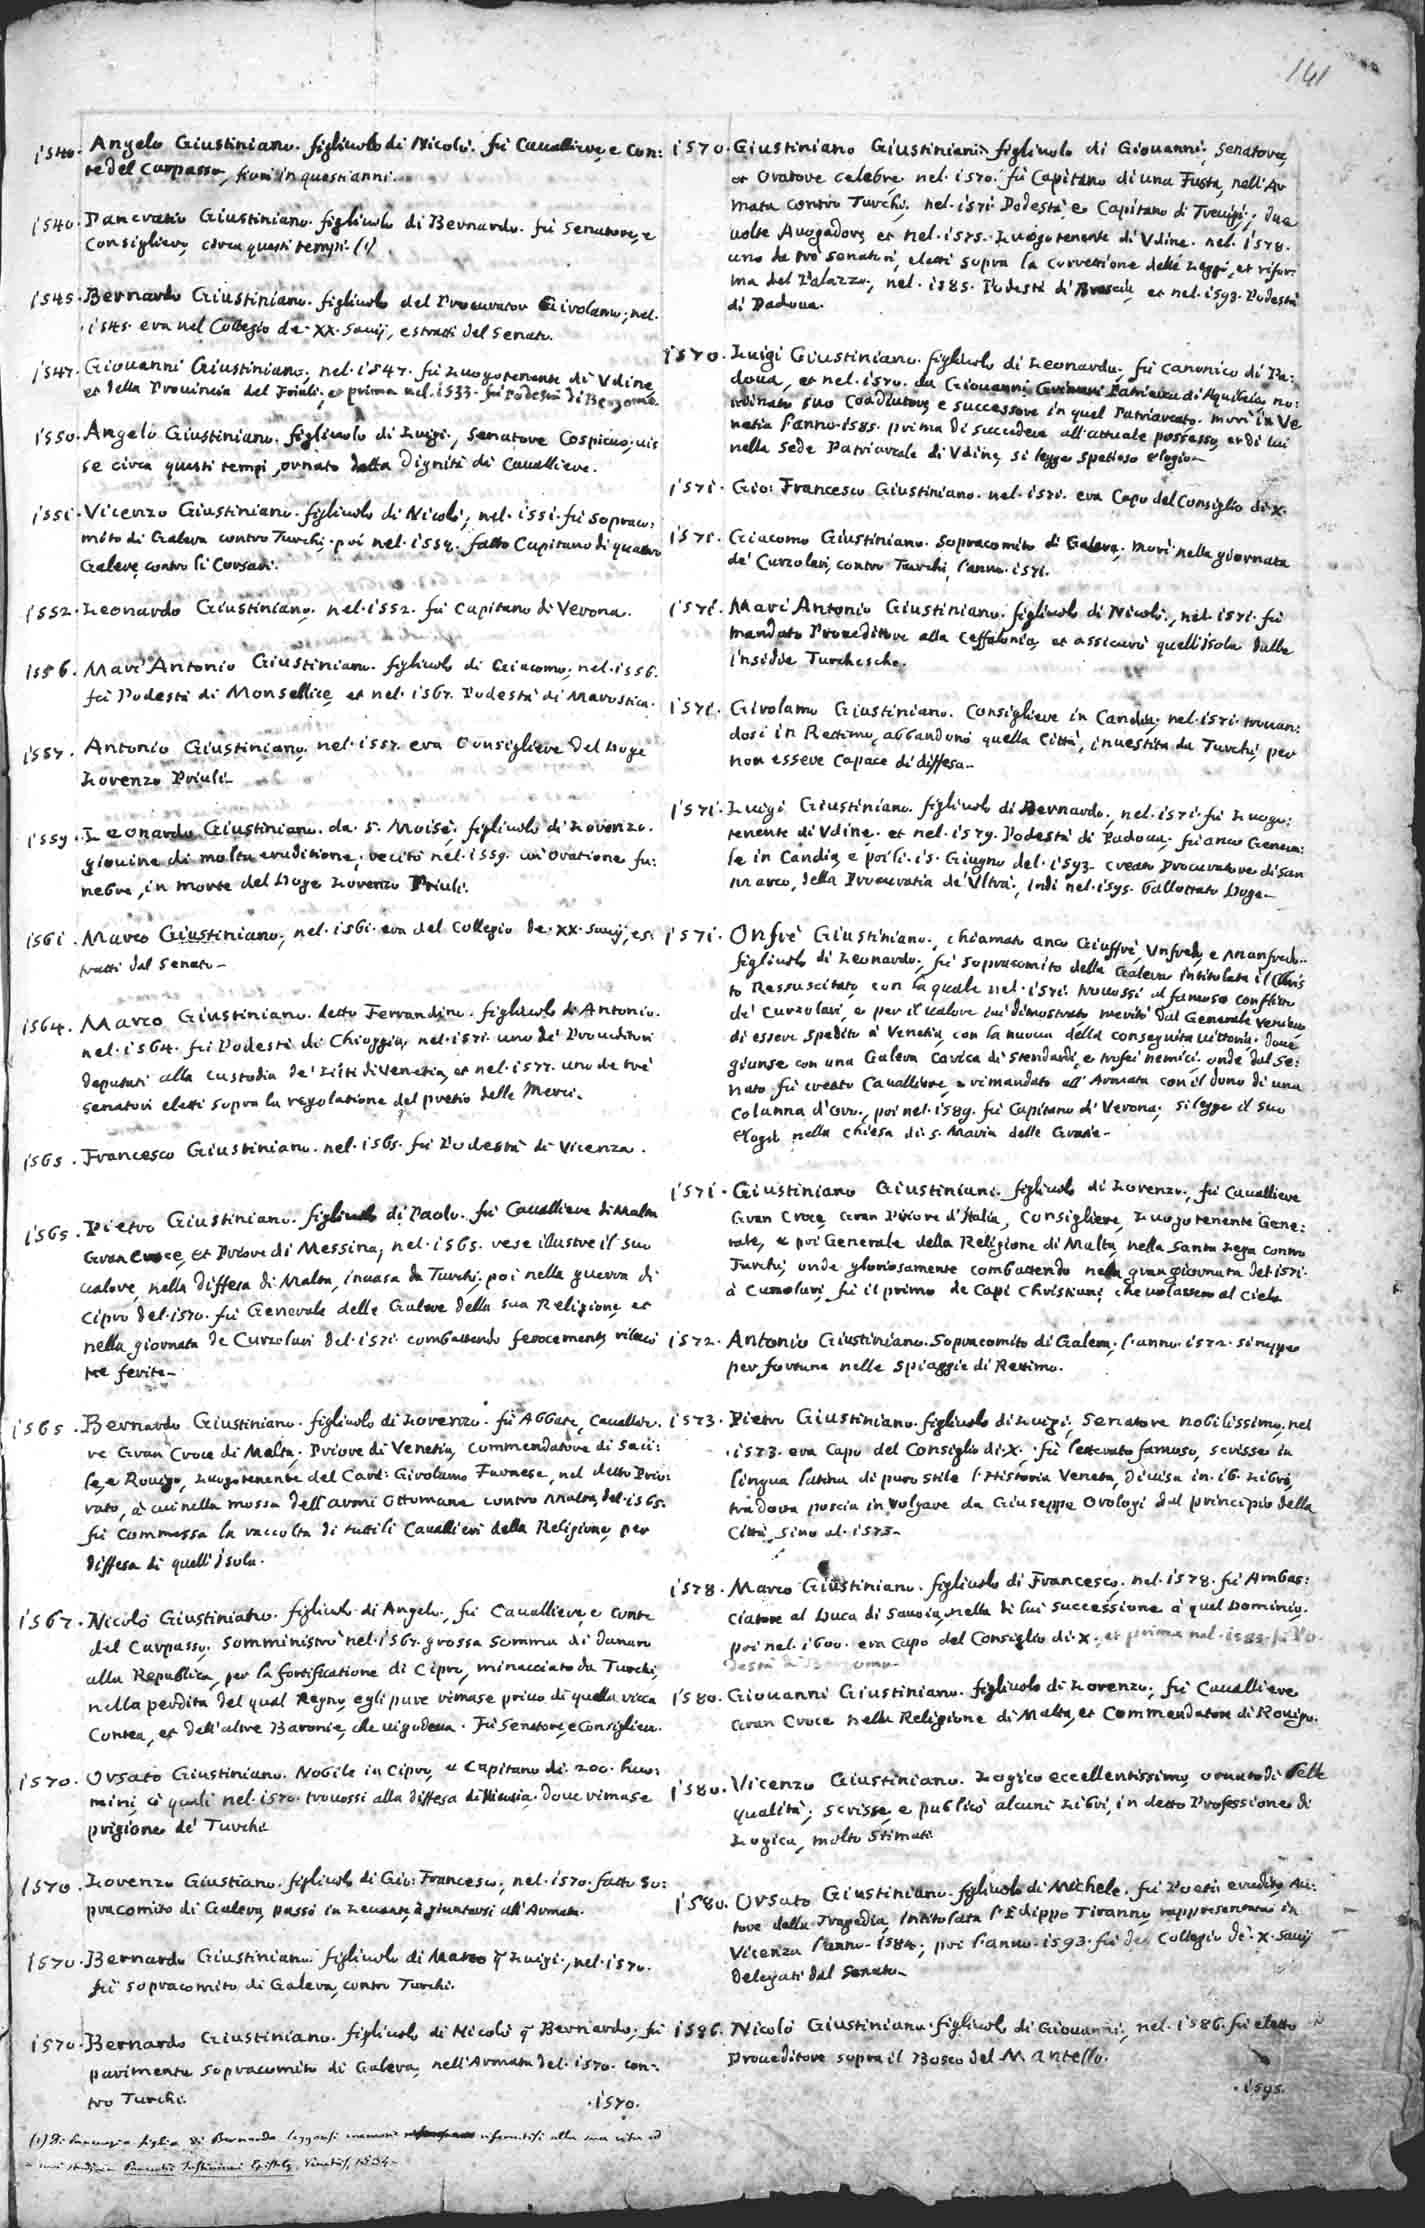 141
1540. Angelo Giustiniano. figliuolo di Nicolò. fù Cavalliere, e Con:
te del Carpasso, fiorì in questi anni.
1540. Pancratio Giustiniano. figliuolo di Bernardo. fù Senatore, e
Consigliere, circa questi tempi. (1)
1545. Bernardo Giustiniano. figliuolo del Procurator Girolamo; nel.
.1545. era nel Collegio de. XX. Savij, estratti del Senato.
1547. Giovanni Giustiniano, nel. 1547. fù Luogotenente di Vdine,
et della Provincia del Friuli, et prima nel. 1533. fù Podestà di Bergomo.
1550. Angelo Giustiniano. figliuolo di Luigi, Senatore Cospicuo, vis
se circa questi tempi, ornato della Dignità di Cavalliere.
1551. Vicenzo Giustiniano. figliuolo di Nicolò, nel. 1551. fù Sopraco:
mito di Galera contro Turchi, poi nel. 1554. fatto Capitano di quattro
Galere, contro li Corsari.
1552. Leonardo Giustiniano, nel. 1552. fù Capitano di Verona.
1556. Marc'Antonio Giustiniano. figliuolo di Giacomo, nel. 1556.
fù Podestà di Monsellice, et nel. 1567. Podestà di Marostica.
1557. Antonio Giustiniano, nel. 1557. era Consigliere del Doge
Lorenzo Priuli.
1559. Leonardo Giustiniano. da. S. Moisè, figliuolo di Lorenzo.
giovine di molta eruditione, recitò nel. 1559. un'Oratione fu:
nebre, in morte del Doge Lorenzo Priuli.
1561. Marco Giustiniano, nel. 1561. era del Collegio de. XX. Savij, es:
tratti dal Senato.
1564. Marco Giustiniano. detto Ferrandino. figliuolo di Antonio.
nel. 1564. fù Podestà di Chioggia, nel. 1571. uno de' Proveditori
deputati alla custodia de' Liti di Venetia, et nel. 1577. uno de trè
Senatori eletti sopra la regolatione del pretio delle Merci.
1565. Francesco Giustiniano. nel. 1565. fù Podestà di Vicenza.
1565. Pietro Giustiniano. figliuolo di Paolo. fù Cavalliere di Malta
Gran Croce, et Priore di Messina, nel. 1565. rese illustre il suo
valore, nella diffesa di Malta, invasa da Turchi, poi nella guerra di
Cipro del. 1570. fù Generale delle Galere della sua Religione, et
nella giornata de Curzolari del. 1571. combattendo ferocemente, rilevò
tre ferite.
1565. Bernardo Giustiniano. figliuolo di Lorenzo. fù Abbate, Cavallie:
re Gran Croce di Malta, Priore di Venetia, Commendatore di Saci:
le, e Rovigo, Luogotenente del Card: Girolamo Farnese, nel detto Prio:
rato, à cui nella mossa dell'armi Ottomane contro Malta, del. 1565.
fù Commessa la raccolta di tutti li Cavallieri della Religione, per
diffesa di quell'Isola.
1567. Nicolò Giustiniano. figliuolo di Angelo, fù Cavalliere, e Conte
del Carpasso, somministrò nel. 1567. grossa somma di danaro
alla Republica, per la fortificatione di Cipro, minacciato da Turchi,
nella perdita del qual Regno, egli pure rimase privo di quella ricca
Contea, et dell'altre Baronie, che vi godeva. Fù Senatore, e Consigliere.
1570. Orsato Giustiniano. Nobile in Cipro, e Capitano di. 200. huo:
mini, cò quali nel. 1570. trovossi alla diffesa di Nicosia, dove rimase
prigione de' Turchi.
1570. Lorenzo Giustiano. figliuolo di Gio: Francesco, nel. 1570. fatto So:
pracomito di Galera, passò in Levante, à giuntarsi all'Armata.
1570. Bernardo Giustiniano. figliuolo di Marco q. Luigi, nel. 1570.
fù Sopracomito di Galera, contro Turchi.
1570. Bernardo Giustiniano. figliuolo di Nicolò q. Bernardo, fù
parimente Sopracomito di Galera, nell'Armata del. 1570. con:
tro Turchi.
.1570.
(1) Di Pancrazio figlio di Bernardo leggonsi memorie riferentisi alla sua vita ed
a suoi studi in Pancratii Justiniani Epistolę, Venetiis,
1570. Giustiniano Giustiniani. figliuolo di Giovanni, Senatore,
et Oratore celebre. nel. 1570. fù Capitano di una Fusta, nell'Ar
mata contro Turchi. nel. 1571. Podestà e Capitano di Trevigi, due
volte Avogadore, et nel. 1575. Luogotenente di Vdine. nel. 1578.
uno de trè Senatori, eletti sopra la correttione delle Leggi, et rifor:
ma del Palazzo, nel. 1585. Podestà di Brescia, et nel. 1593. Podestà
di Padova.
1570. Luigi Giustiniano. figliuolo di Leonardo, fù Canonico di Pa:
dova, et nel. 1570. da Giovanni Grimani Patriarca di Aquileia no:
minato suo Coadiutore, e successore in quel Patriarcato. morì in Ve
netia l'anno. 1585. prima di succedere all'attuale possesso, et di lui
nella Sede Patriarcale di Vdine, si legge spetioso elogio.
1571. Gio: Francesco Giustiniano. nel. 1571. era Capo del Consiglio di. X.
1571. Giacomo Giustiniano. Sopracomito di Galera. morì nella giornata
de' Curzolari, contro Turchi, l'anno. 1571.
1571. Marc'Antonio Giustiniano. figliuolo di Nicolò, nel. 1571. fù
mandato Proveditore alla Ceffalonia, et assicurò quell'Isola dalle
insidie Turchesche.
1571. Girolamo Giustiniano. Consigliere in Candia, nel. 1571. trovan:
dosi in Rettimo, abbandonò quella Città, investita da Turchi, per
non essere capace di diffesa.
1571. Luigi Giustiniano. figliuolo di Bernardo, nel. 1571. fù Luogo:
tenente di Vdine. et nel. 1579. Podestà di Padova. fù anco Genera:
le in Candia, e poi li. 15. Giugno del. 1593. creato Procuratore di San
Marco, della Procuratia de' Vltra, indi nel. 1595. ballottato Doge.
1571. Onfrè Giustiniano, chiamato anco Giuffrè, Vnfredo, e Manfredo.
figliuolo di Leonardo, fù Sopracomito della Galera intitolata il Chris
to Ressuscitato, con la quale nel. 1571. trovossi al famoso conflitto
de' Curzolari, e per il valore ivi dimostrato meritò dal Generale Veniero
di essere spedito à Venetia, con la nuova della conseguita vittoria. dove
giunse con una Galera carica di stendardi, e trofei nemici. onde dal Se:
nato fù creato Cavalliere, e rimandato all'Armata con il dono di una
Colanna d'oro, poi nel. 1589. fù Capitano di Verona, si legge il suo
elogio nella chiesa di. S. Maria delle Gratie.
1571. Giustiniano Giustiniani. figliuolo di Lorenzo, fù Cavalliere
Gran Croce, Gran Priore d'Italia, Consigliere, Luogotenente Gene:
rale, e poi Generale della Religione di Malta, nella Santa Lega contro
Turchi, onde gloriosamente combattendo nella gran giornata del. 1571.
à Curzolari, fù il primo de Capi Christiani, che volassero al Cielo.
1572. Antonio Giustiniano. Sopracomito di Galera, l'anno. 1572. si ruppe
per fortuna nelle spiaggie di Rettimo.
1573. Pietro Giustiniano. figliuolo di Luigi, Senatore nobilissimo, nel
.1573. era Capo del Consiglio di. X. fù letterato famoso, scrisse in
lingua latina di puro stile l'Historia Veneta, divisa in. 16. Libri,
tradotta poscia in volgare da Giuseppe Orologi dal principio della
Città, sino al. 1573.
1578. Marco Giustiniano. figliuolo di Francesco, nel. 1578. fù Ambas:
ciatore al Duca di Savoia, nella di lui successione à quel Dominio.
poi nel. 1600. era Capo del Consiglio di. X., et prima nel. 1583. fù Po
destà di Bergomo.
1580. Giovanni Giustiniano. figliuolo di Lorenzo, fù Cavalliere
Gran Croce nella Religione di Malta, et Commendatore di Rovigo.
1580. Vicenzo Giustiniano. Logico eccellentissimo, ornato di belle
qualità, scrisse, e publicò alcuni Libri, in detta Professione di
Logica, molto stimati.
1580. Orsato Giustiniano. figliuolo di Michele. fù Poeta erudito, Au:
tore della Tragedia, Intitolata l'Edippo Tiranno, rappresentata in
Vicenza l'anno. 1584; poi l'anno. 1593. fù del Collegio de'. X. Savij
delegati dal Senato.
1586. Nicolò Giustiniano. figliuolo di Giovanni, nel. 1586. fù eletto
Proveditore sopra il Bosco del Mantello.
.1595.